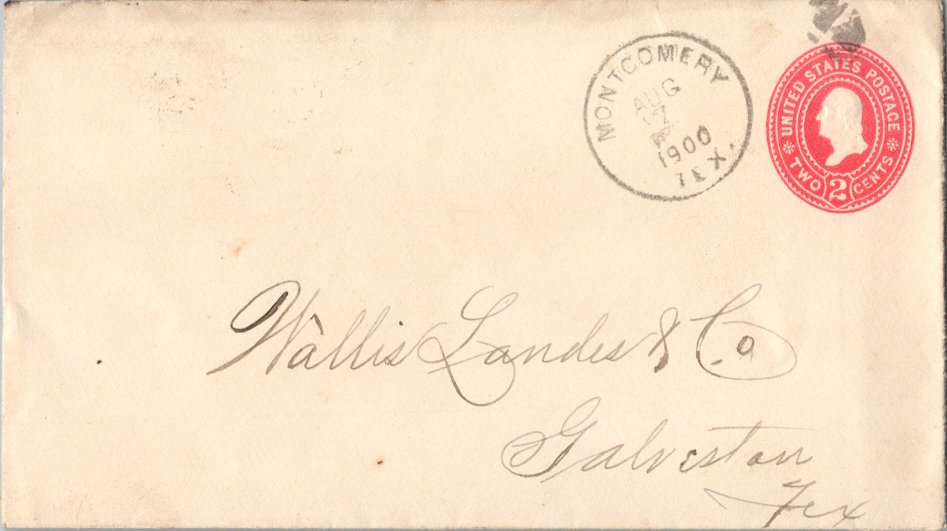 MONTGOMERY
AUG
17
1900
TEX.
UNITED STATES POSTAGE
TWO 2 CENTS
Wallis Landes & Co
Galveston
Tex